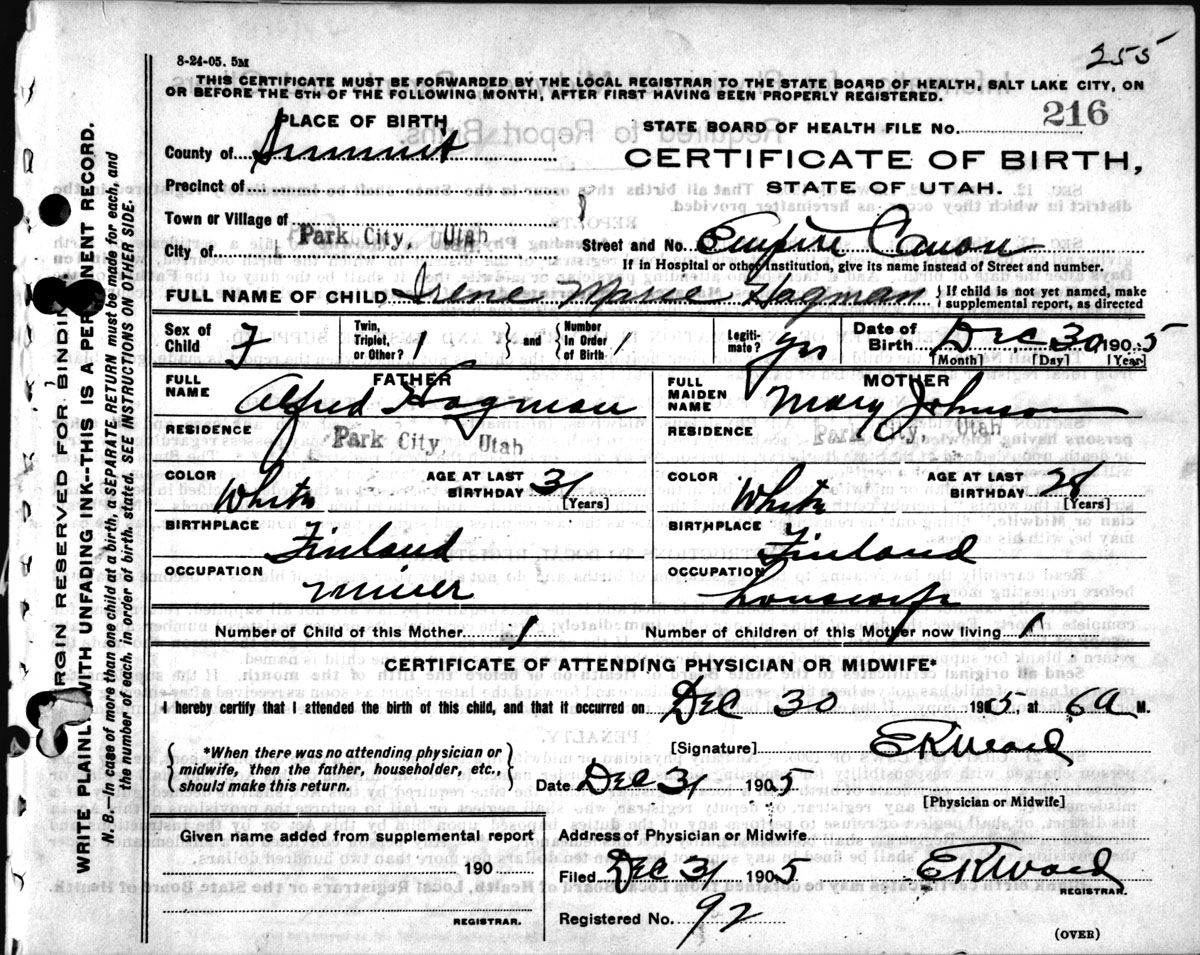 8-24-05. 5M
255
THIS CERTIFICATE MUST BE FORWARDED BY THE LOCAL REGISTRAR TO THE STATE BOARD OF HEALTH, SALT LAKE CITY, ON
OR BEFORE THE 5TH OF THE FOLLOWING MONTH, AFTER FIRST HAVING BEEN PROPERLY REGISTERED.
PLACE OF BIRTH
STATE BOARD OF HEALTH FILE NO. 216
County of Summit
CERTIFICATE OF BIRTH,
Precinct of
STATE OF UTAH.
Town or Village of
City of Park City, Utah
Street and No. Empire Canon
If in Hospital or other Institution, give its name instead of Street and number.
FULL NAME OF CHILD Irene Marie Hagman { If child is not yet named, make
supplemental report, as directed
Sex of Child F
Twin, Triplet, or Other? 1 } and { Number in Order of Birth 1
Legitimate? yes
Date of Birth Dec 30 1905
[Month] [Day] [Year]
FATHER
FULL NAME Alfred Hagman
MOTHER
FULL MAIDEN NAME Mary Johnson
RESIDENCE Park City, Utah
RESIDENCE Park City, Utah
COLOR White
AGE AT LAST BIRTHDAY 31 [Years]
COLOR White
AGE AT LAST BIRTHDAY 28 [Years]
BIRTHPLACE Finland
BIRTHPLACE Finland
OCCUPATION miner
OCCUPATION housewife
Number of Child of this Mother 1
Number of children of this Mother now living 1
CERTIFICATE OF ATTENDING PHYSICIAN OR MIDWIFE*
I hereby certify that I attended the birth of this child, and that it occurred on Dec 30 1905, at 6 a M.
*When there was no attending physician or
midwife, then the father, householder, etc.,
should make this return.
[Signature] E R Ward
Date Dec 31 1905
[Physician or Midwife]
Given name added from supplemental report
190
REGISTRAR.
Address of Physician or Midwife
Filed Dec 31 1905 E R Ward
REGISTRAR.
Registered No. 92
(OVER)
MARGIN RESERVED FOR BINDING
WRITE PLAINLY WITH UNFADING INK--THIS IS A PERMANENT RECORD.
N. B.--In case of more than one child at a birth, a SEPARATE RETURN must be made for each, and
the number of each, in order of birth, stated. SEE INSTRUCTIONS ON OTHER SIDE.